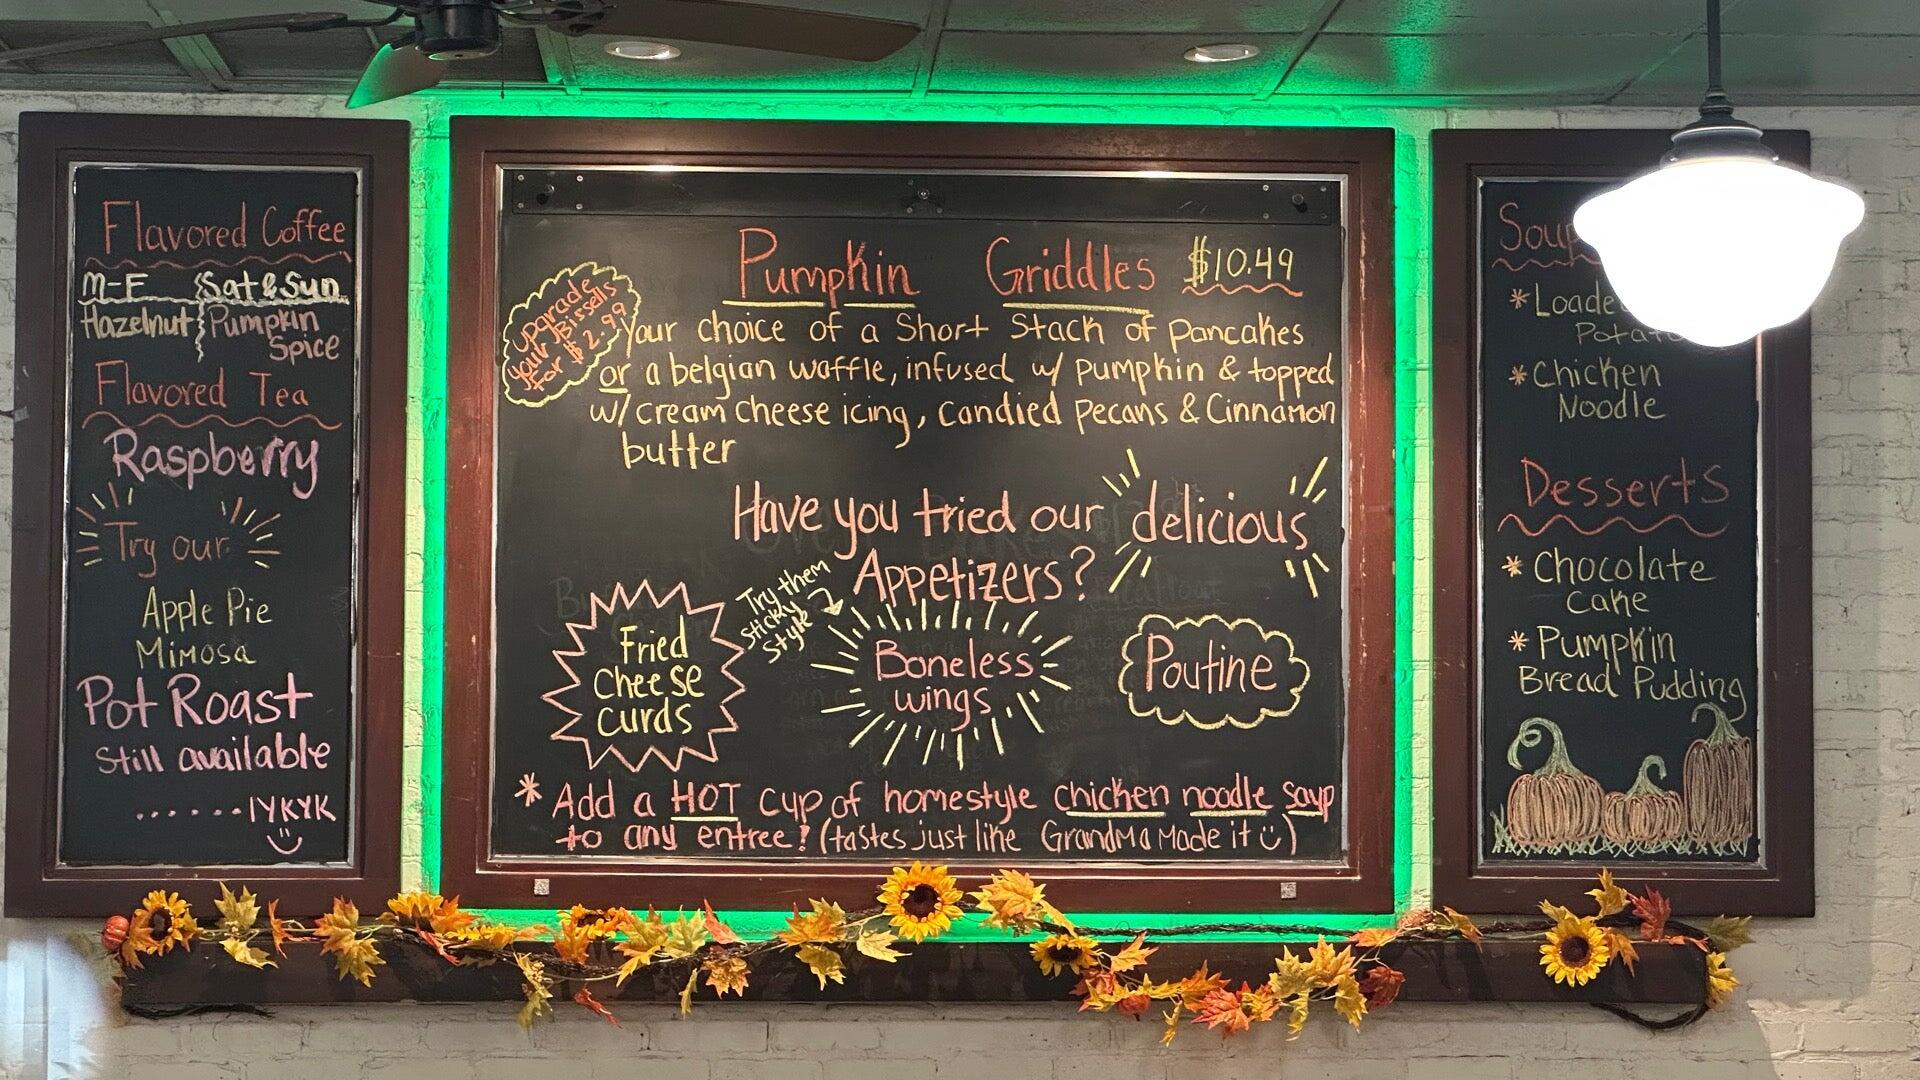 Flavored Coffee
M-F Sat & Sun
Hazelnut Pumpkin
Spice
Flavored Tea
Raspberry
Try our
Apple Pie
Mimosa
Pot Roast
Still available
......IYKYK
Pumpkin Griddles $10.49
upgrade
your Bissells
for $2.99
Your choice of a Short Stack of pancakes
or a belgian waffle, infused w/ pumpkin & topped
w/ cream cheese icing, candied pecans & Cinnamon
butter
Have you tried our delicious
Appetizers?
Fried
Cheese
curds
Try them
Sticky
Style
Boneless
wings
Poutine
* Add a HOT cup of homestyle chicken noodle soup
to any entree! (tastes just like GrandMa Made it)
* Chicken
Noodle
Desserts
* Chocolate
Cake
* Pumpkin
Bread Pudding